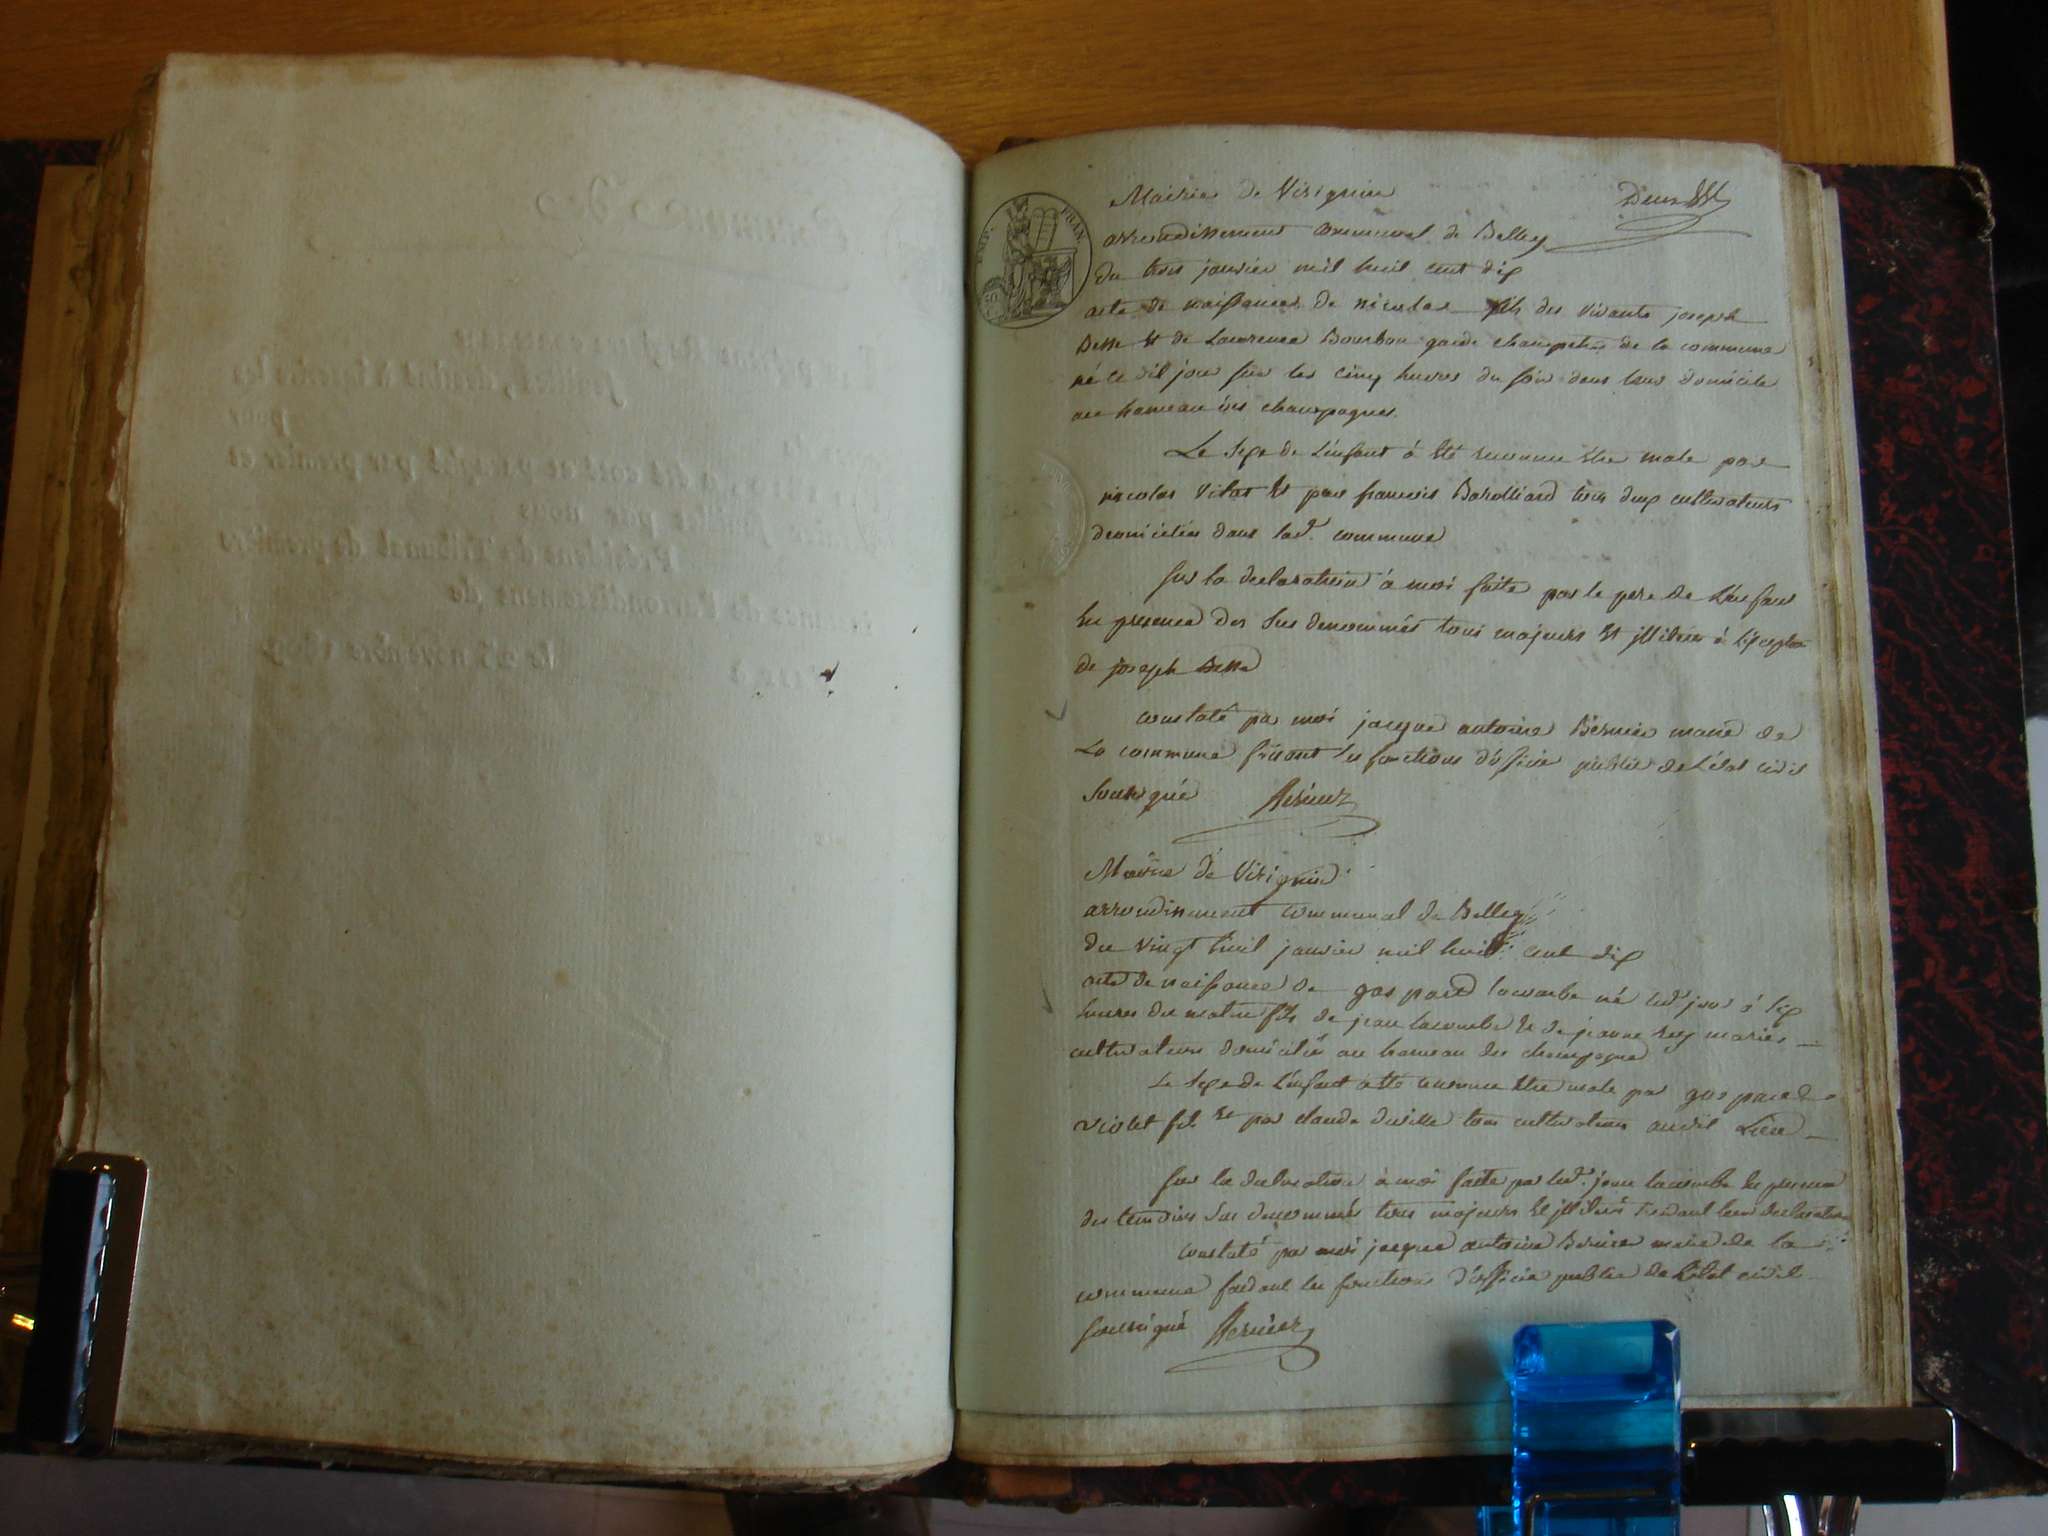 Mairie de Virignin
Deux
arrondissement communal de Belley
du trois janvier mil huit cent dix
acte de naissance de nicolas fils des vivants joseph
Bette et de Laurence Bourbon garde champetre de la commune
né ce dit jour sur les cinq heures du soir dans leur domicile
au hameau des champagnes
Le sexe de L'enfant à été reconnu etre male par
nicolas Vilat et par francois Barolliard tous deux cultivateurs
domiciliés dans lad. commune
Sur la declaration à moi faite par le pere de L'enfant
En presence des sus denommés tous majeurs et illiteré à L'exception
de joseph Bette
constaté par moi jacque antoine Bernier maire de
La commune faisant les fonctions d'officier public de L'état civil
soussigné Bernier
IMP. FRAN.
Mairie de Virignin
arrondissement communal de Belley
du vingt huit janvier mil huit cent dix
acte de naissance de gaspard lacombe né led. jour à six
heures du matin fils de jean lacombe et de jeanne rey mariés
cultivateurs domiciliés au hameau de champagne
Le sexe de L'enfant a été reconnu etre male par gaspard
violet fils et par claude deville tous cultivateurs audit Lieu
Sur la declaration à moi faite par led. jean lacombe En presence
des temoins sus denommés tous majeurs et illiterés suivant leur declaration
constaté par moi jacque antoine Bernier maire de la
commune faisant les fonctions d'officier public de L'état civil
soussigné Bernier